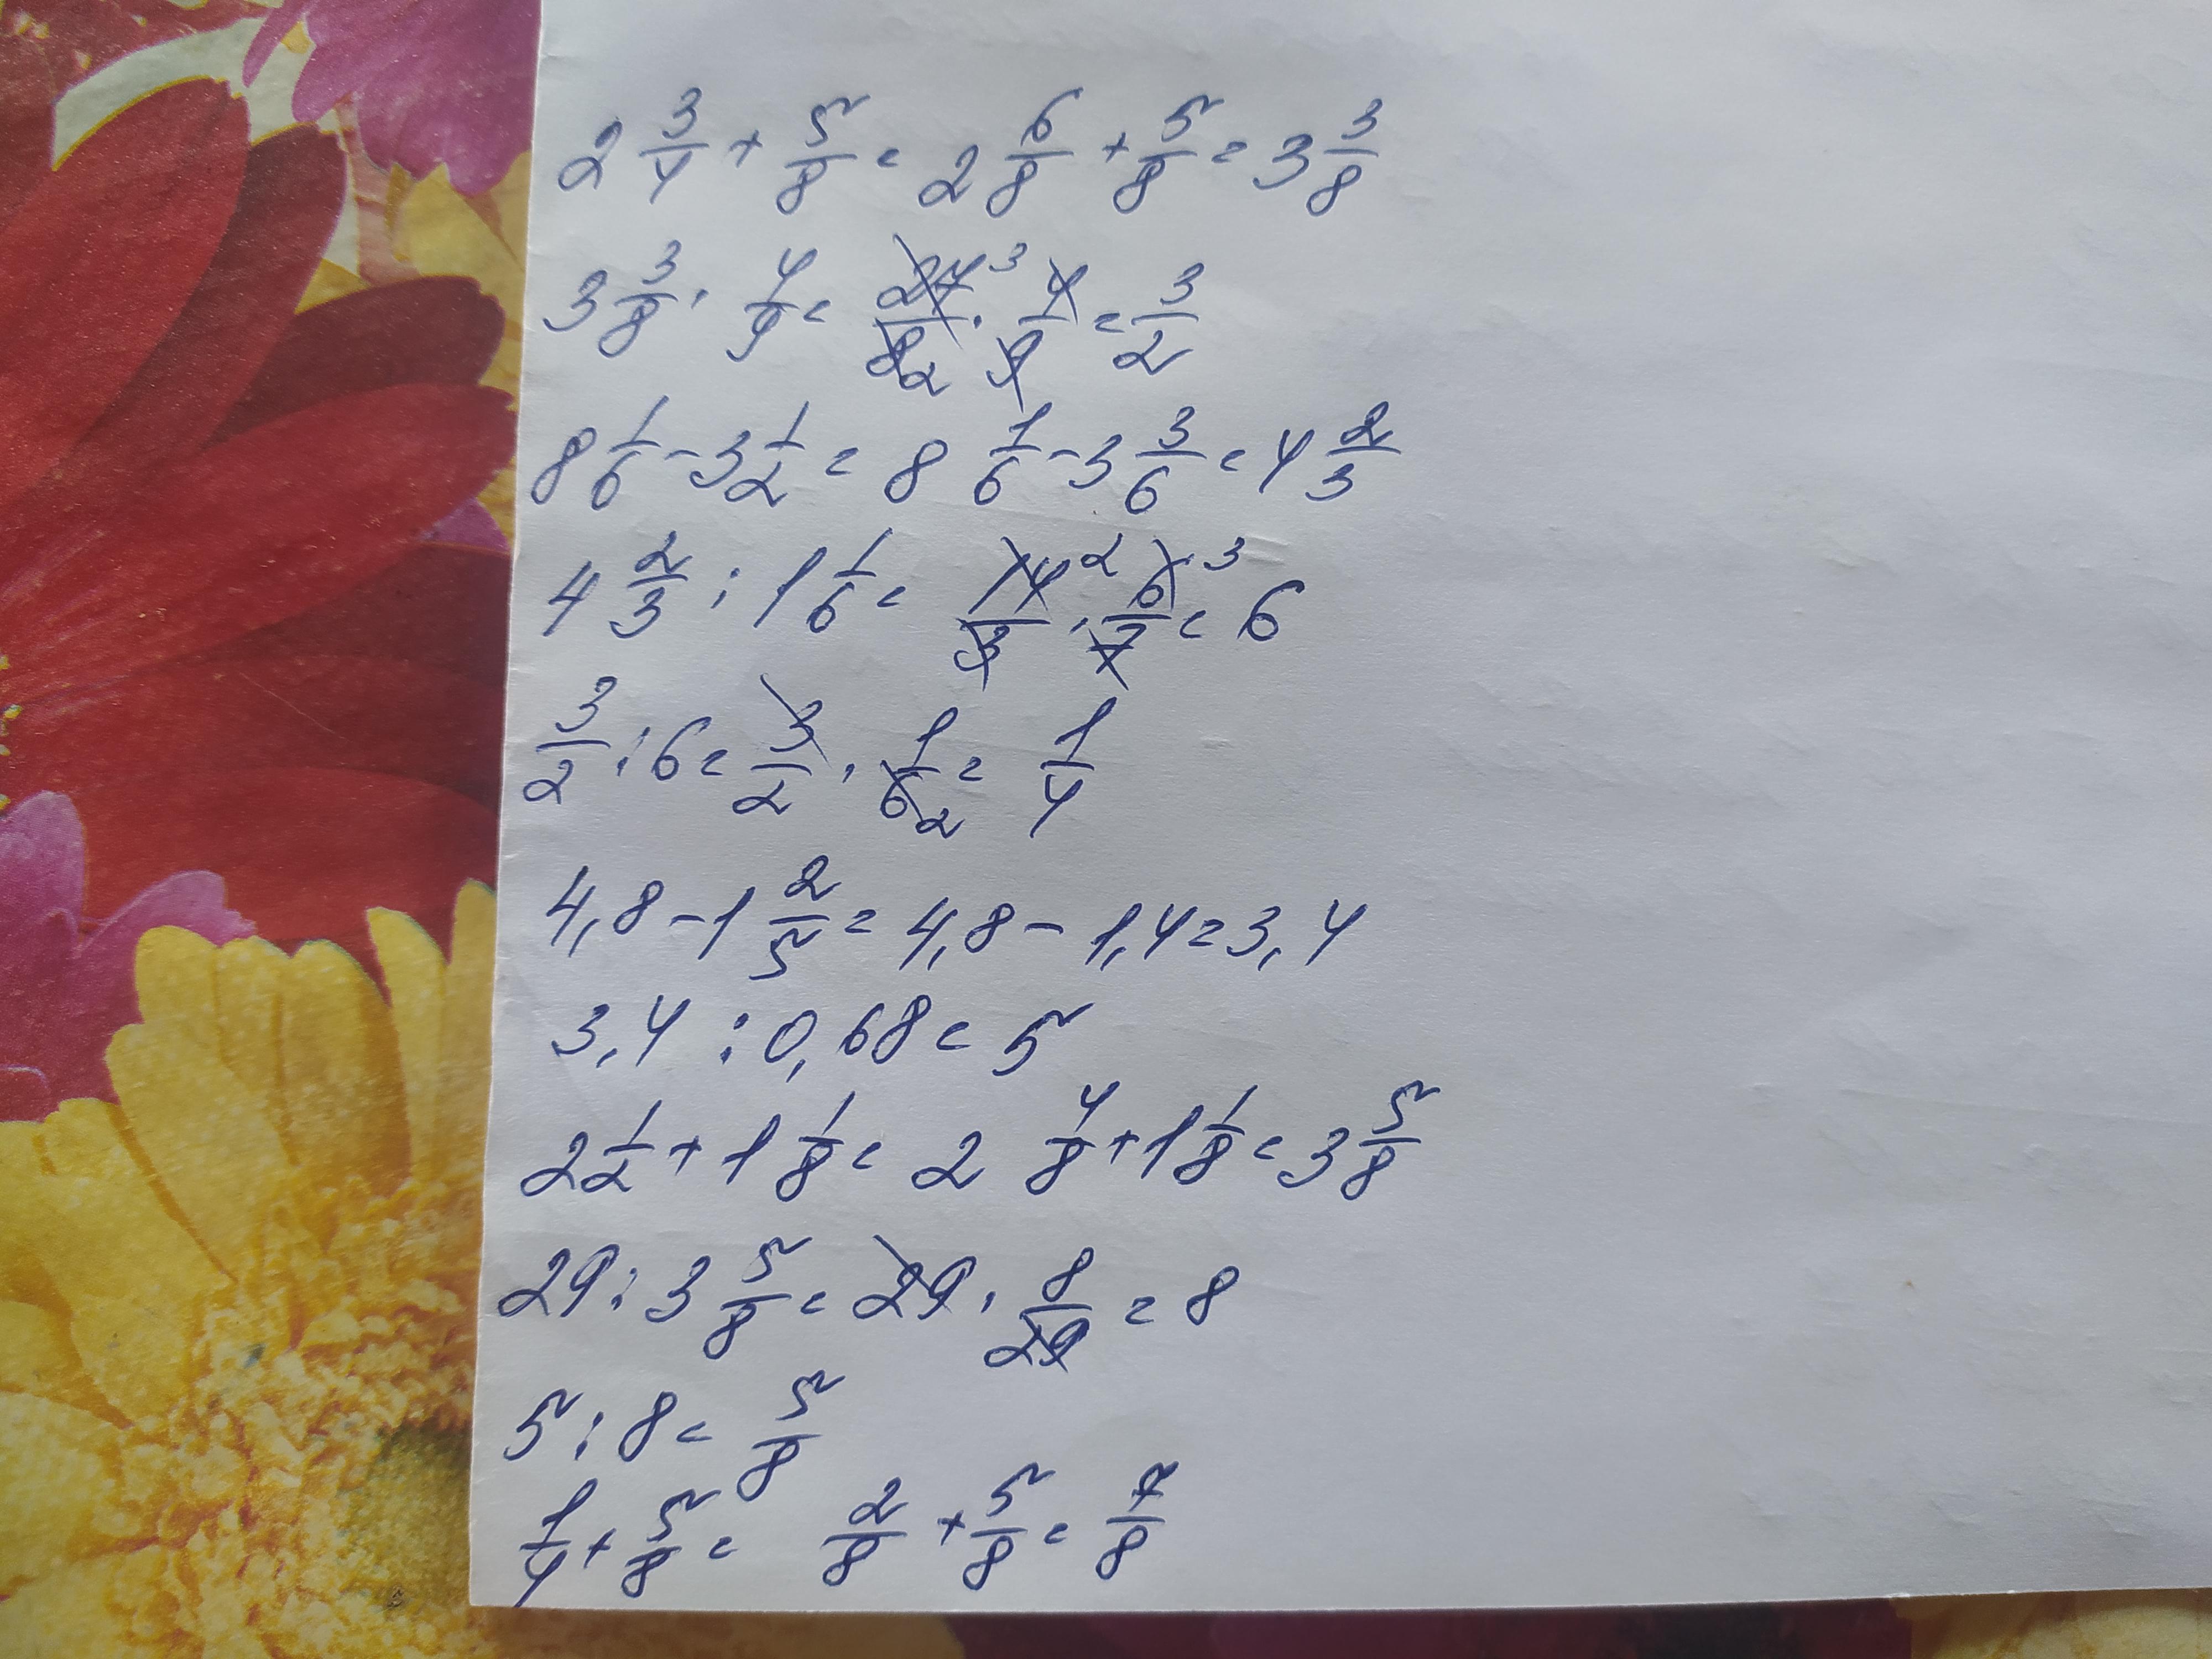 2 3/4 + 5/8 = 2 6/8 + 5/8 = 3 3/8
3 3/8 · 4/9 = 27/8 3 2 · 4/9 = 3/2
8 1/6 - 3 1/2 = 8 1/6 - 3 3/6 = 4 2/3
4 2/3 : 1 1/6 = 14/3 2 · 6/7 3 = 6
3/2 : 6 = 3/2 · 1/6 2 = 1/4
4,8 - 1 2/5 = 4,8 - 1,4 = 3,4
3,4 : 0,68 = 5
2 1/2 + 1 1/8 = 2 4/8 + 1 1/8 = 3 5/8
29 : 3 5/8 = 29 · 8/29 = 8
5 : 8 = 5/8
1/4 + 5/8 = 2/8 + 5/8 = 7/8